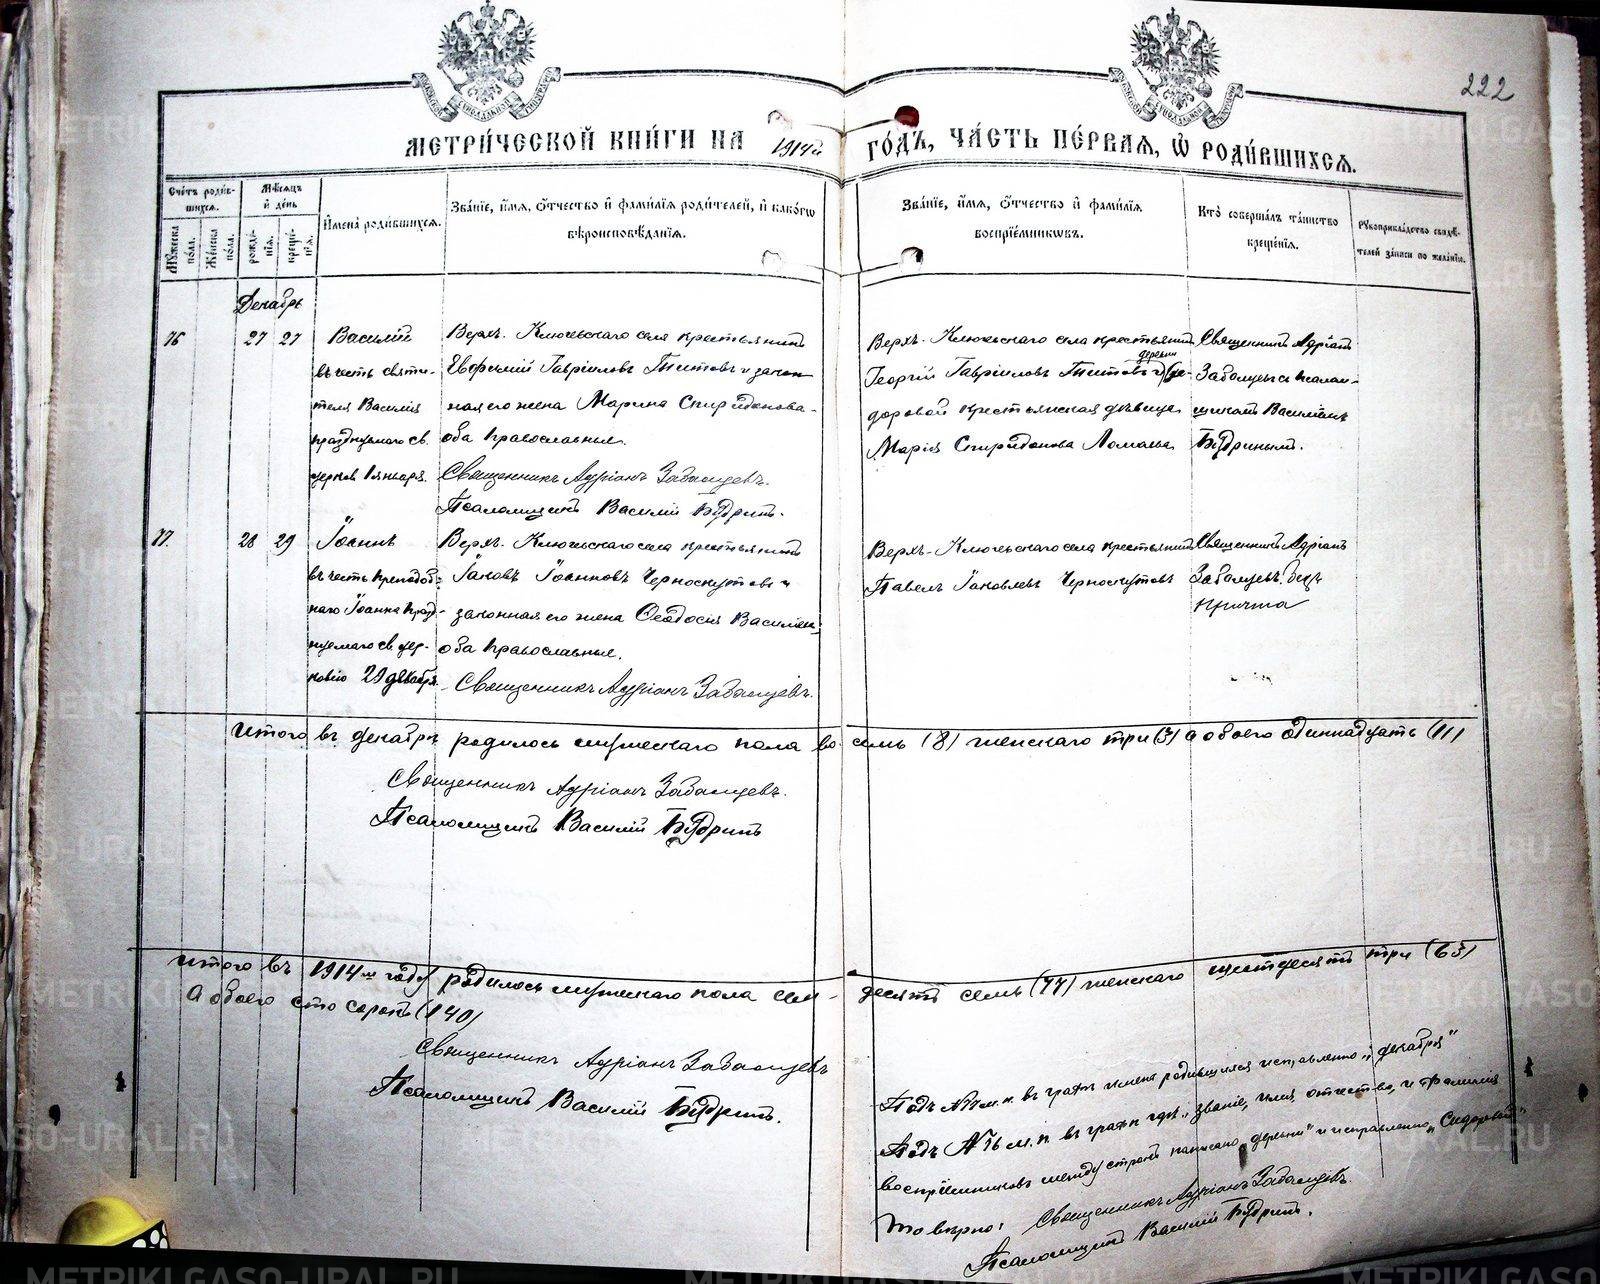 222
МЕТРИ́ЧЕСКОЙ КНИ́ГИ НА 1914й ГО́ДЪ, ЧА́СТЬ ПЕ́РВАЯ, Ѡ РОДИ́ВШИХСЯ.
Сче́тъ роди́в-
шихся.
Му́жеска по́ла.
Же́нска по́ла.
Мѣ́сяцъ и́ де́нь
рожде́нія.
креще́нія.
И҆мена̀ роди́вшихся.
Зва́нїе, и҆́мя, ѻ҆́тчество и҆ фами́лїя роди́телей, и҆ како́гѡ
вѣроисповѣ́данїя.
Зва́нїе, и҆́мя, ѻ҆́тчество и҆ фами́лїя
воспрїе́мниковъ.
Кто̀ соверша́лъ та́инство
креще́нїя.
Рукоприкла́дство свидѣ́-
телей за́писи по жела́нїю.
Декабрь
76 27 27 Василій
въ честь святи-
теля Василія
празднуемаго св.
церков 1 января.
Верхъ. Ключевскаго села крестьянинъ
Евфимій Гавріиловъ Титовъ и закон
ная его жена Марина Спиридонова-
оба православные.
Священникъ Адріанъ Забалуевъ.
Псаломщикъ Василій Бѣдринъ.
Верхъ-Ключевскаго села крестьянинъ
деревни
Георгій Гавріиловъ Титовъ и
крестьянская дѣвица
Марія Спиридонова
Священникъ Адріанъ
Забалуевъ съ псалом-
щикомъ Василіемъ
Бѣдринымъ.
77. 28 29 Іоаннъ
въ честь преподоб-
наго Іоанна празд-
нуемаго св. цер-
ковію 29 декабря.
Верхъ. Ключевскаго села крестьянинъ
Іаковъ Іоанновъ Черноскутовъ и
законная его жена Ѳеодосія Василіева;
оба православные.
Священникъ Адріанъ Забалуевъ.
Верхъ-Ключевскаго села крестьянинъ
Павелъ Іаковлевъ Черноскутовъ
Священникъ Адріанъ
Забалуевъ безъ
причта
Итого въ декабрѣ родилось мужескаго пола во-семь (8) женскаго три (3) а обоего одиннадцать (11)
Священникъ Адріанъ Забалуевъ.
Псаломщикъ Василій Бѣдринъ
Итого въ 1914мъ году родилось мужескаго пола сем-десятъ семь (77) женскаго шестьдесятъ три (63)
а обоего сто сорокъ (140)
Священникъ Адріанъ Забалуевъ
Псаломщикъ Василій Бѣдринъ.
Подъ №77 м.п. въ графѣ имена родившихся исправлено „декабря"
Подъ №76 м.п. въ графѣ гдѣ „званіе, имя отчество, и фамилія
воспріемниковъ между строкъ написано „деревни" и исправлено „Сидоровой"
то вѣрно: Священникъ Адріанъ Забалуевъ.
Псаломщикъ Василій Бѣдринъ.
METRIKI.GASO-URAL.RU